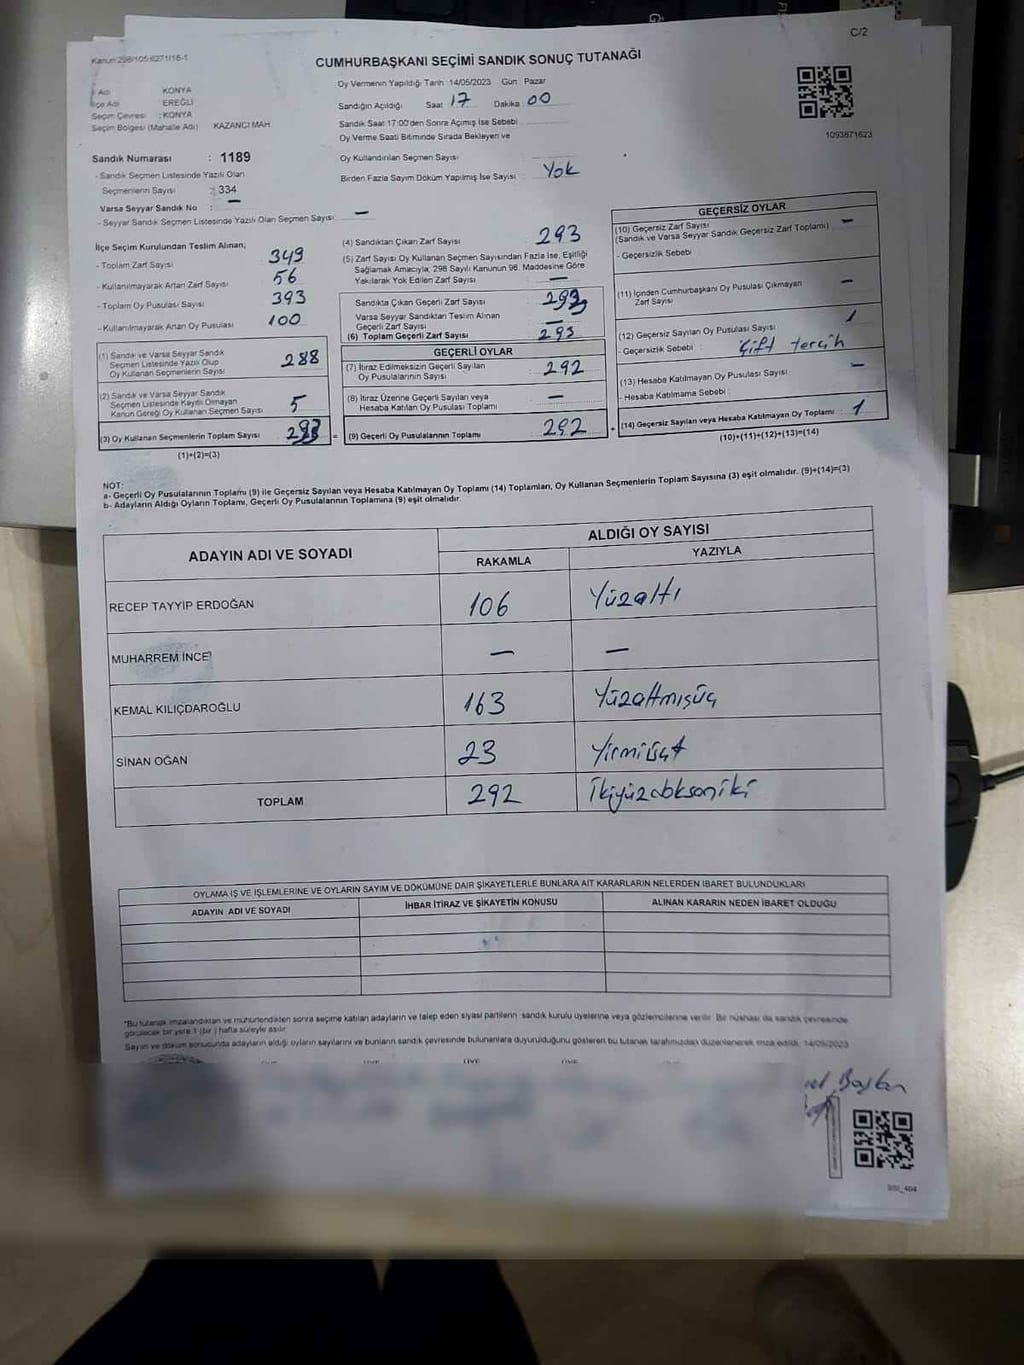 C/2
Kanun 298/105:6271/16-1
CUMHURBAŞKANI SEÇİMİ SANDIK SONUÇ TUTANAĞI
İl Adı KONYA
İlçe Adı EREĞLİ
Seçim Çevresi : KONYA
Seçim Bölgesi (Mahalle Adı) KAZANCI MAH.
Oy Vermenin Yapıldığı Tarih : 14/05/2023 Gün : Pazar
Sandığın Açıldığı Saat 17 Dakika 00
Sandık Saat 17:00'den Sonra Açımış İse Sebebi
Oy Verme Saati Bitiminde Sırada Bekleyen ve
Oy Kullandırılan Seçmen Sayısı
Birden Fazla Sayım Döküm Yapılmış İse Sayısı : Yok
1093871623
Sandık Numarası : 1189
- Sandık Seçmen Listesinde Yazılı Olan
Seçmenlerin Sayısı : 334
Varsa Seyyar Sandık No : —
- Seyyar Sandık Seçmen Listesinde Yazılı Olan Seçmen Sayısı : —
İlçe Seçim Kurulundan Teslim Alınan;
- Toplam Zarf Sayısı 349
- Kullanılmayarak Artan Zarf Sayısı 56
- Toplam Oy Pusulası Sayısı 393
- Kullanılmayarak Artan Oy Pusulası 100
(1) Sandık ve Varsa Seyyar Sandık
Seçmen Listesinde Yazılı Olup
Oy Kullanan Seçmenlerin Sayısı 288
(2) Sandık ve Varsa Seyyar Sandık
Seçmen Listesinde Kayıtlı Olmayan
Kanun Gereği Oy Kullanan Seçmen Sayısı 5
(3) Oy Kullanan Seçmenlerin Toplam Sayısı 293
(1)+(2)=(3)
(4) Sandıktan Çıkan Zarf Sayısı 293
(5) Zarf Sayısı Oy Kullanan Seçmen Sayısından Fazla İse, Eşitliği
Sağlamak Amacıyla, 298 Sayılı Kanunun 98. Maddesine Göre
Yakılarak Yok Edilen Zarf Sayısı —
Sandıkta Çıkan Geçerli Zarf Sayısı 293
Varsa Seyyar Sandıktan Teslim Alınan
Geçerli Zarf Sayısı —
(6) Toplam Geçerli Zarf Sayısı 293
GEÇERLİ OYLAR
(7) İtiraz Edilmeksizin Geçerli Sayılan
Oy Pusulalarının Sayısı 292
(8) İtiraz Üzerine Geçerli Sayılan veya
Hesaba Katılan Oy Pusulası Toplamı —
= (9) Geçerli Oy Pusulalarının Toplamı 292
GEÇERSİZ OYLAR
(10) Geçersiz Zarf Sayısı —
(Sandık ve Varsa Seyyar Sandık Geçersiz Zarf Toplamı)
- Geçersizlik Sebebi :
(11) İçinden Cumhurbaşkanı Oy Pusulası Çıkmayan
Zarf Sayısı —
(12) Geçersiz Sayılan Oy Pusulası Sayısı : 1
- Geçersizlik Sebebi : Çift tercih
(13) Hesaba Katılmayan Oy Pusulası Sayısı : —
- Hesaba Katılmama Sebebi :
+ (14) Geçersiz Sayılan veya Hesaba Katılmayan Oy Toplamı : 1
(10)+(11)+(12)+(13)=(14)
NOT:
a- Geçerli Oy Pusulalarının Toplamı (9) ile Geçersiz Sayılan veya Hesaba Katılmayan Oy Toplamı (14) Toplamları, Oy Kullanan Seçmenlerin Toplam Sayısına (3) eşit olmalıdır. (9)+(14)=(3)
b- Adayların Aldığı Oyların Toplamı, Geçerli Oy Pusulalarının Toplamına (9) eşit olmalıdır.
ADAYIN ADI VE SOYADI
ALDIĞI OY SAYISI
RAKAMLA YAZIYLA
RECEP TAYYİP ERDOĞAN 106 Yüzaltı
MUHARREM İNCE — —
KEMAL KILIÇDAROĞLU 163 Yüzaltmışüç
SİNAN OĞAN 23 Yirmiüçt
TOPLAM 292 İkiyüzdoksaniki
OYLAMA İŞ VE İŞLEMLERİNE VE OYLARIN SAYIM VE DÖKÜMÜNE DAİR ŞİKAYETLERLE BUNLARA AİT KARARLARIN NELERDEN İBARET BULUNDUKLARI
ADAYIN ADI VE SOYADI İHBAR İTİRAZ VE ŞİKAYETİN KONUSU ALINAN KARARIN NEDEN İBARET OLDUĞU
*Bu tutanak imzalandıktan ve mühürlendikten sonra seçime katılan adayların ve talep eden siyasi partilerin sandık kurulu üyelerine veya gözlemcilerine verilir. Bir nüshası da sandık çevresinde
görülecek bir yere 1 (bir ) hafta süreyle asılır
Sayım ve döküm sonucunda adayların aldığı oyların sayılarını ve bunların sandık çevresinde bulunanlara duyurulduğunu gösteren bu tutanak tarafımızdan düzenlenerek imza edildi. 14/05/2023
Başkan
SSI_404